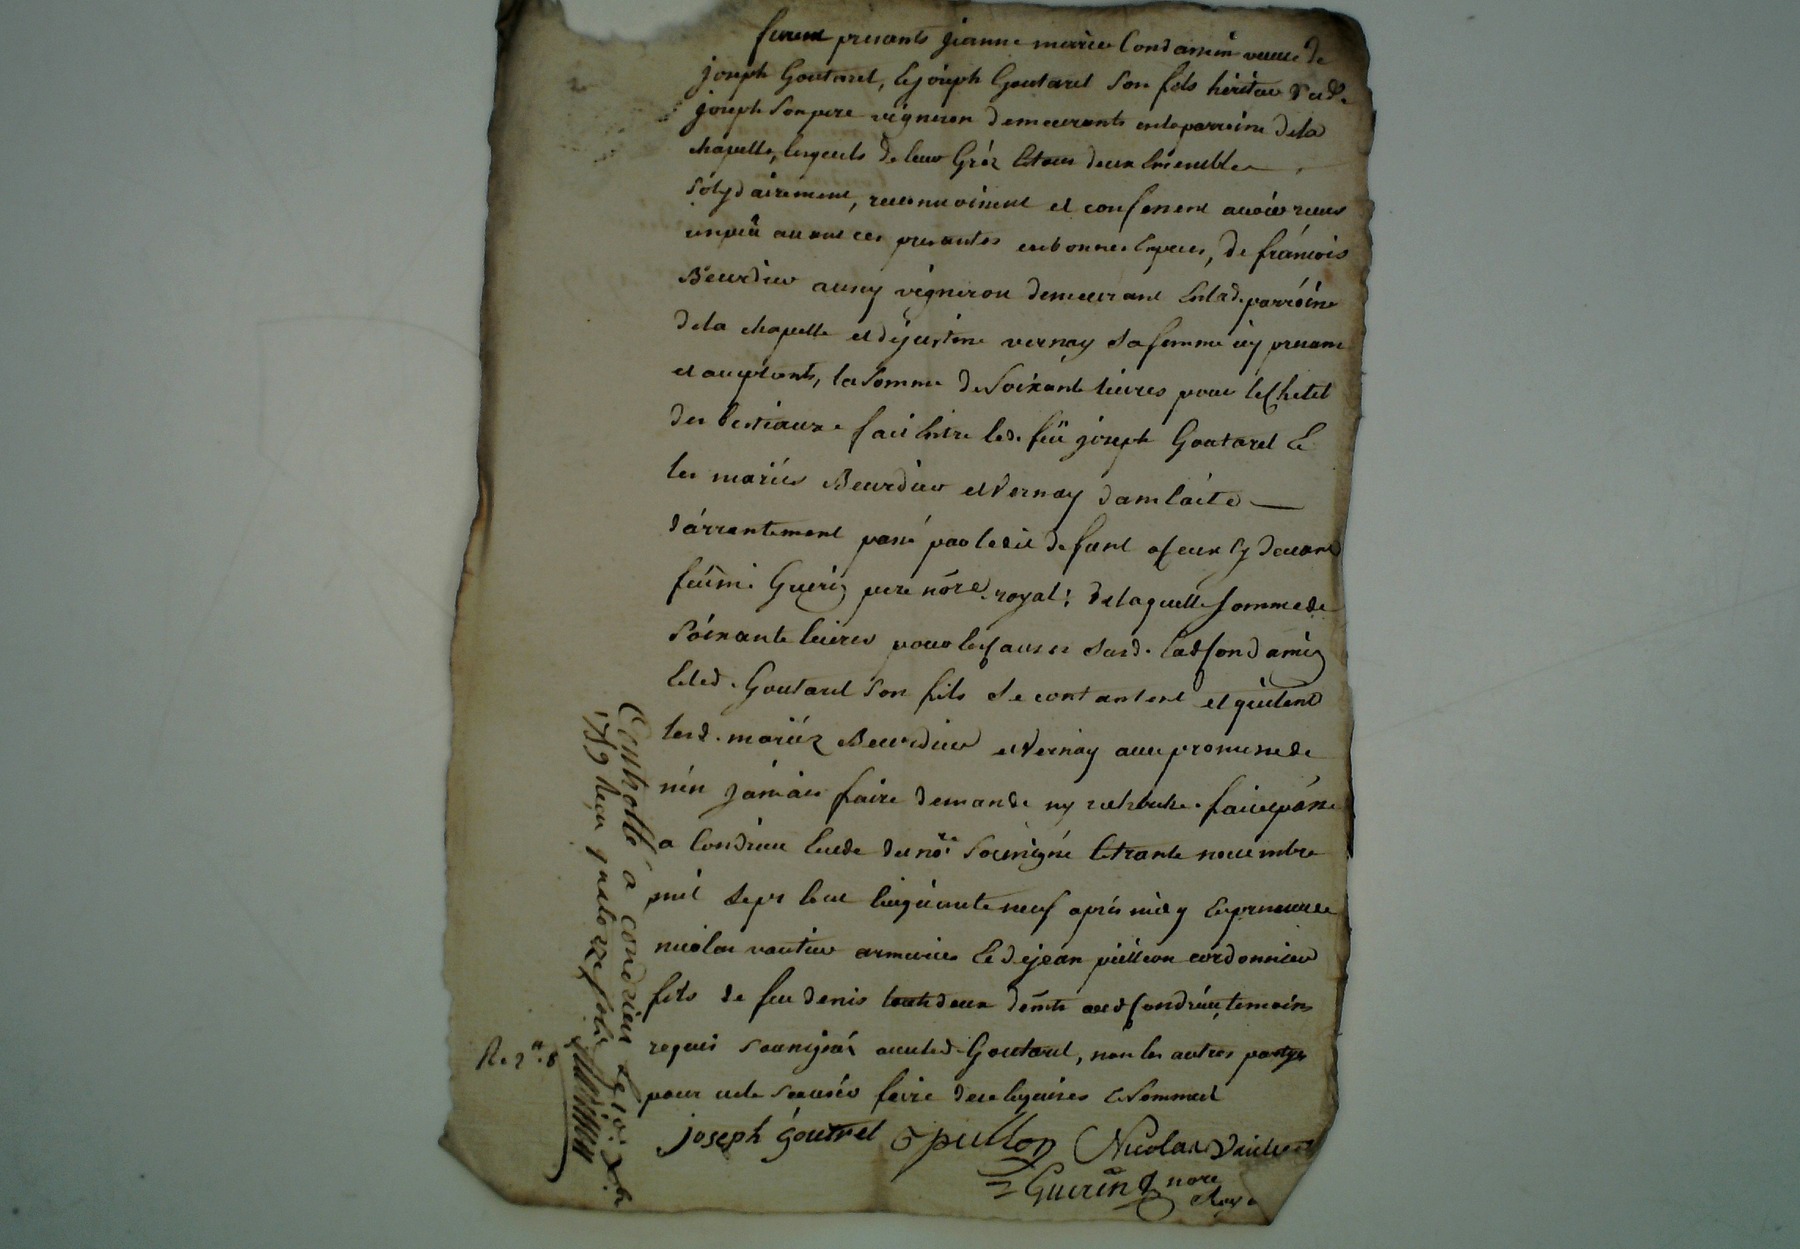 furent presents jeanne marie Condamin veuve de
joseph Goutarel, & joseph Goutarel son fils heritier dud.
joseph son pere vigneron demeurants en la parroisse de la
chapelle, lesquels de leur gréz et tous deux ensembles
solydairement, reconnoissent et confessent avoir reçus
un peû avant ces presantes en bonnes especes, de françois
Beurdier aussy vigneron demeurant en lad. parroisse
de la chapelle et de justine vernay sa femme icy presant
et acceptants, la somme de soixante livres pour le chetel
des bestiaux fait entre led. feü joseph Goutarel &
les mariés Beurdier et Vernay dans l'acte
d'arrentement passé par ledit defunt a ceux cy devant
feu me. Guerin pere nore. royal; de laquelle somme de
soixante livres pour les causes susd. lad Condamin
et led. Goutarel son fils se contantent et quitent
lesd. mariéz Beurdier et Vernay avec promesse de
n'en jamais faire demande ny recherche. fait et passé
a Condrieu etude du nore. soussigné le trante novembre
mil sept cent cinquante neuf après midy en presence de
nicolas vautier armurier & de jean pullion cordonnier
fils de feu denis tout deux demts aud Condrieu, temoins
requis soussignés avec led. Goutarel, non les autres partyes
pour ne le scavoir faire de ce enquises & sommées
joseph goutrel pullion Nicolas Vautier
Guerin nore
Roya
Controllé a condrieu le 10. Xb.
1759 Reçu quatorze sols
Re 2